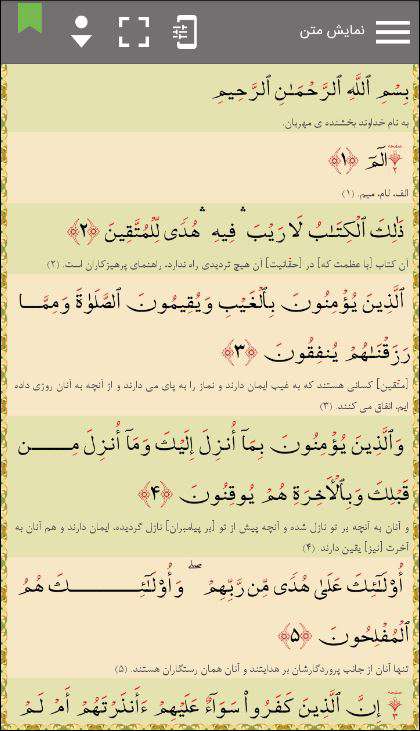 نمایش متن
بِسْمِ ٱللَّهِ ٱلرَّحْمَـٰنِ ٱلرَّحِيمِ
به نام خداوند بخشنده ی مهربان.
صفحه ۲
الٓمٓ ﴿۱﴾
الف، نام، میم. (۱)
ذَٰلِكَ ٱلْكِتَـٰبُ لَا رَيْبَ ۛ فِيهِ ۛ هُدًى لِّلْمُتَّقِينَ ﴿۲﴾
آن کتاب [با عظمت که] در [حقّانیت] آن هیچ تردیدی راه ندارد، راهنمای پرهیزکاران است. (۲)
ٱلَّذِينَ يُؤْمِنُونَ بِٱلْغَيْبِ وَيُقِيمُونَ ٱلصَّلَوٰةَ وَمِمَّـا
رَزَقْنَـٰهُمْ يُنفِقُونَ ﴿۳﴾
[متّقین] کسانی هستند که به غیب ایمان دارند و نماز را به پای می دارند و از آنچه به آنان روزی داده
ایم، انفاق می کنند. (۳)
وَٱلَّذِينَ يُؤْمِنُونَ بِمَآ أُنزِلَ إِلَيْكَ وَمَآ أُنزِلَ مِـن
قَبْلِكَ وَبِٱلْـَٔاخِرَةِ هُمْ يُوقِنُونَ ﴿۴﴾
و آنان به آنچه بر تو نازل شده و آنچه پیش از تو [بر پیامبران] نازل گردیده، ایمان دارند و هم آنان به
آخرت [نیز] یقین دارند. (۴)
أُوْلَـٰٓئِكَ عَلَىٰ هُدًى مِّن رَّبِّهِمْ ۖ وَأُوْلَـٰٓئِـكَ هُمُ
ٱلْمُفْلِحُونَ ﴿۵﴾
تنها آنان از جانب پروردگارشان بر هدایتند و آنان همان رستگاران هستند. (۵)
صفحه ۳
إِنَّ ٱلَّذِينَ كَفَرُواْ سَوَآءٌ عَلَيْهِمْ ءَأَنذَرْتَهُمْ أَمْ لَمْ